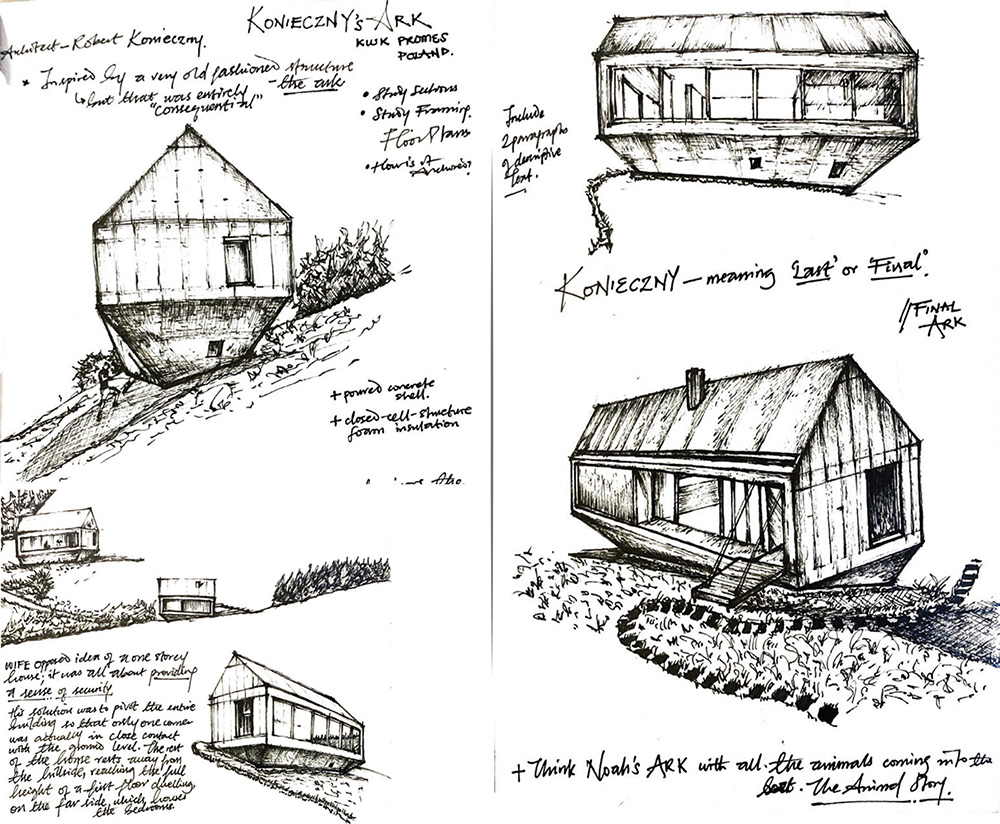 KONIECZNY'S ARK
KWK PROMES
POLAND.
Architect - Robert Konieczny.
* Inspired by a very old fashioned structure
↳ but that was entirely - the ark
"consequential"
• Study Sections
• Study Framing.
Floor Plans
• How is it
Anchored?
+ poured concrete
shell.
+ closed-cell-structure
foam insulation
Also
WIFE opposed idea of a one storey
house; it was all about providing
a sense of security
His solution was to pivot the entire
building so that only one corner
was actually in close contact
with the ground level. The rest
of the house rests away from
the hillside, reaching the full
height of a first floor dwelling
on the far side, which houses
the bedrooms.
Include
2 paragraphs
of descriptive
text.
KONIECZNY - meaning 'Last' or 'Final'.
//FINAL
ARK
+ Think Noah's ARK with all the animals coming into the
boat. The Animal Story.